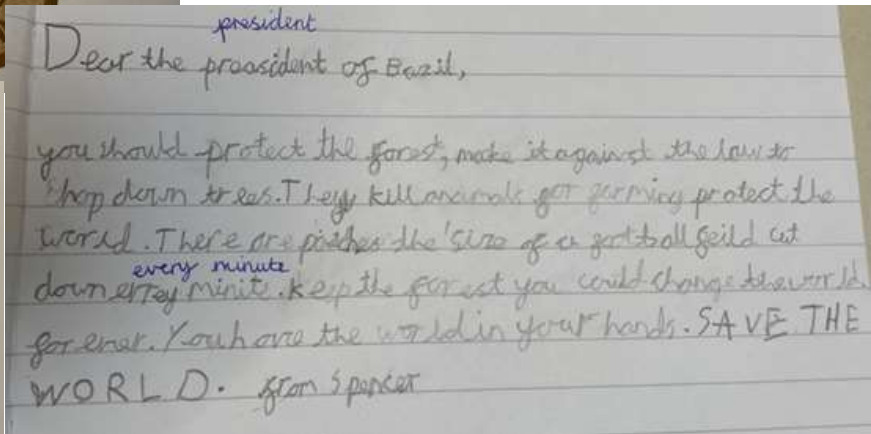 president
Dear the proosident of Bazil,
you should protect the forest, make it against the law to
chop down trees. They kill animals for farming protect the
world. There are pieches the size of a football feild cut
every minute
down errey minite. keep the forest you could change the world
for ever. You have the world in your hands. SAVE THE
WORLD. from Spencer